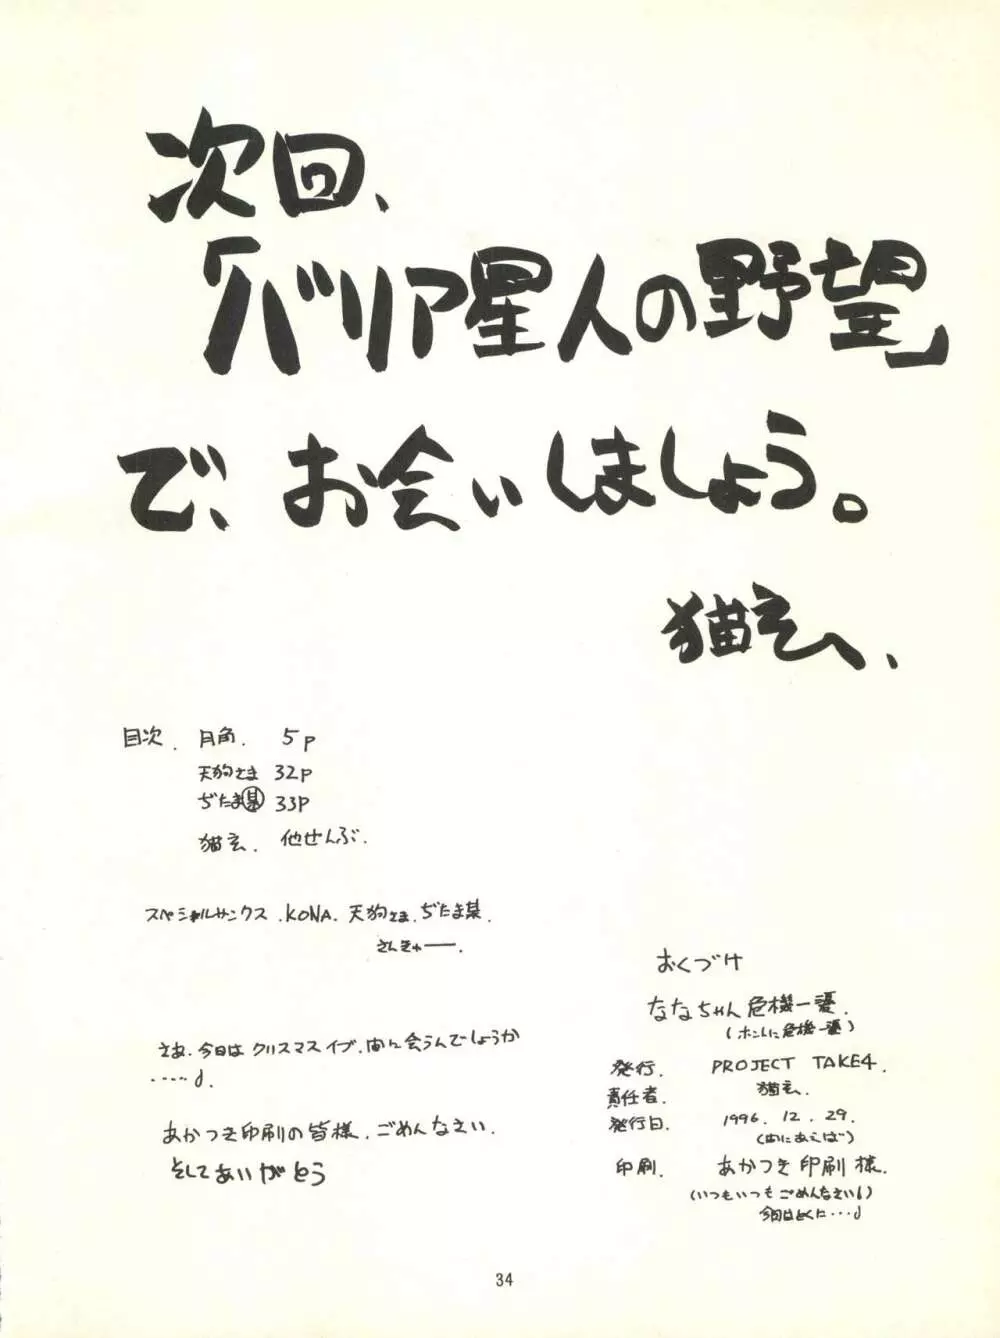 次回、
「バリア星人の野望」
で、お会いしましょう。
猫玄、
目次. 月角. 5p
天狗さま 32p
ぢたま某 33p
猫玄. 他ぜんぶ.
スペシャルサンクス.KONA.天狗さま.ぢたま某.
さんきゅー.
さあ、今日はクリスマスイブ、間に会うんでしょうか
・・・・・♪
あかつき印刷の皆様、ごめんなさい.
そしてありがとう
おくづけ
ななちゃん危機一髪.
(ホントに危機一髪)
発行. PROJECT TAKE4.
責任者. 猫玄.
発行日. 1996.12.29.
(間にあえば)
印刷. あかつき印刷様.
(いつもいつもごめんなさい♪)
今回はとくに・・・♪
34